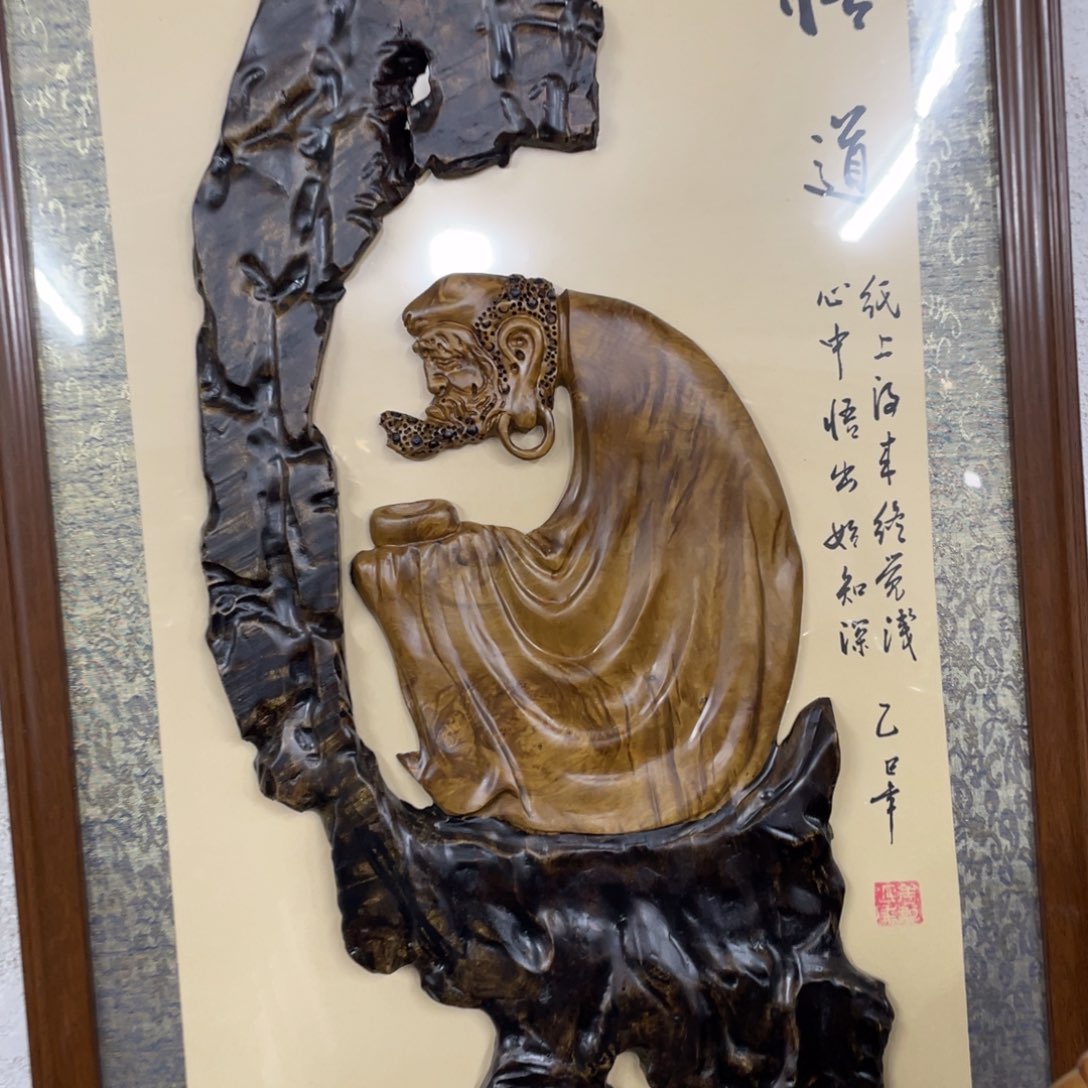 悟道
纸上得来终觉浅
心中悟出始知深
乙巳年